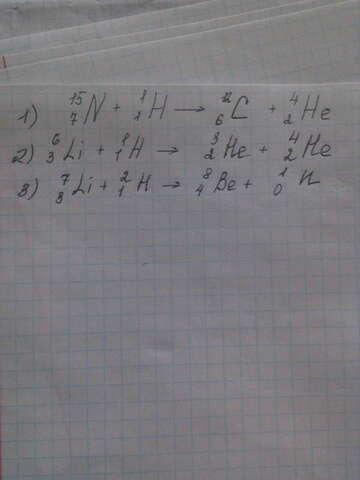 1) ¹⁵₇N + ¹₁H → ¹²₆C + ⁴₂He
2) ⁶₃Li + ¹₁H → ³₂He + ⁴₂He
3) ⁷₃Li + ²₁H → ⁸₄Be + ¹₀n